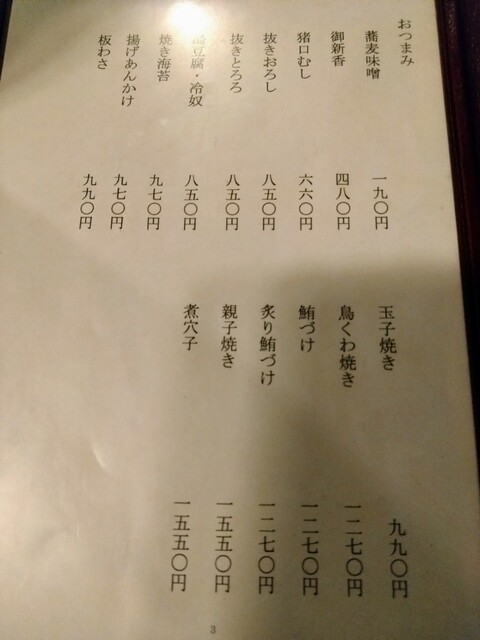 おつまみ
蕎麦味噌 一九〇円
御新香 四八〇円
猪口むし 六六〇円
抜きおろし 八五〇円
抜きとろろ 八五〇円
豆腐・冷奴 八五〇円
焼き海苔 九七〇円
揚げあんかけ 九七〇円
板わさ 九九〇円
玉子焼き 九九〇円
鳥くわ焼き 一二七〇円
鮪づけ 一二七〇円
炙り鮪づけ 一二七〇円
親子焼き 一五五〇円
煮穴子 一五五〇円
3